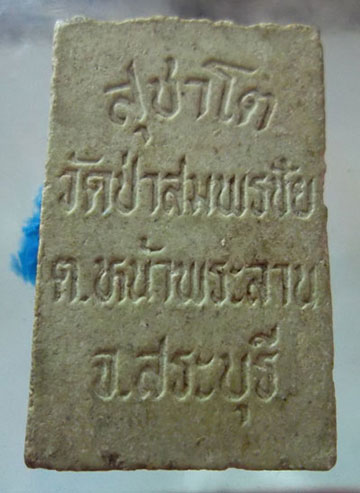 สุชาโต
วัดป่าสมพรชัย
ต.หน้าพระลาน
จ.สระบุรี